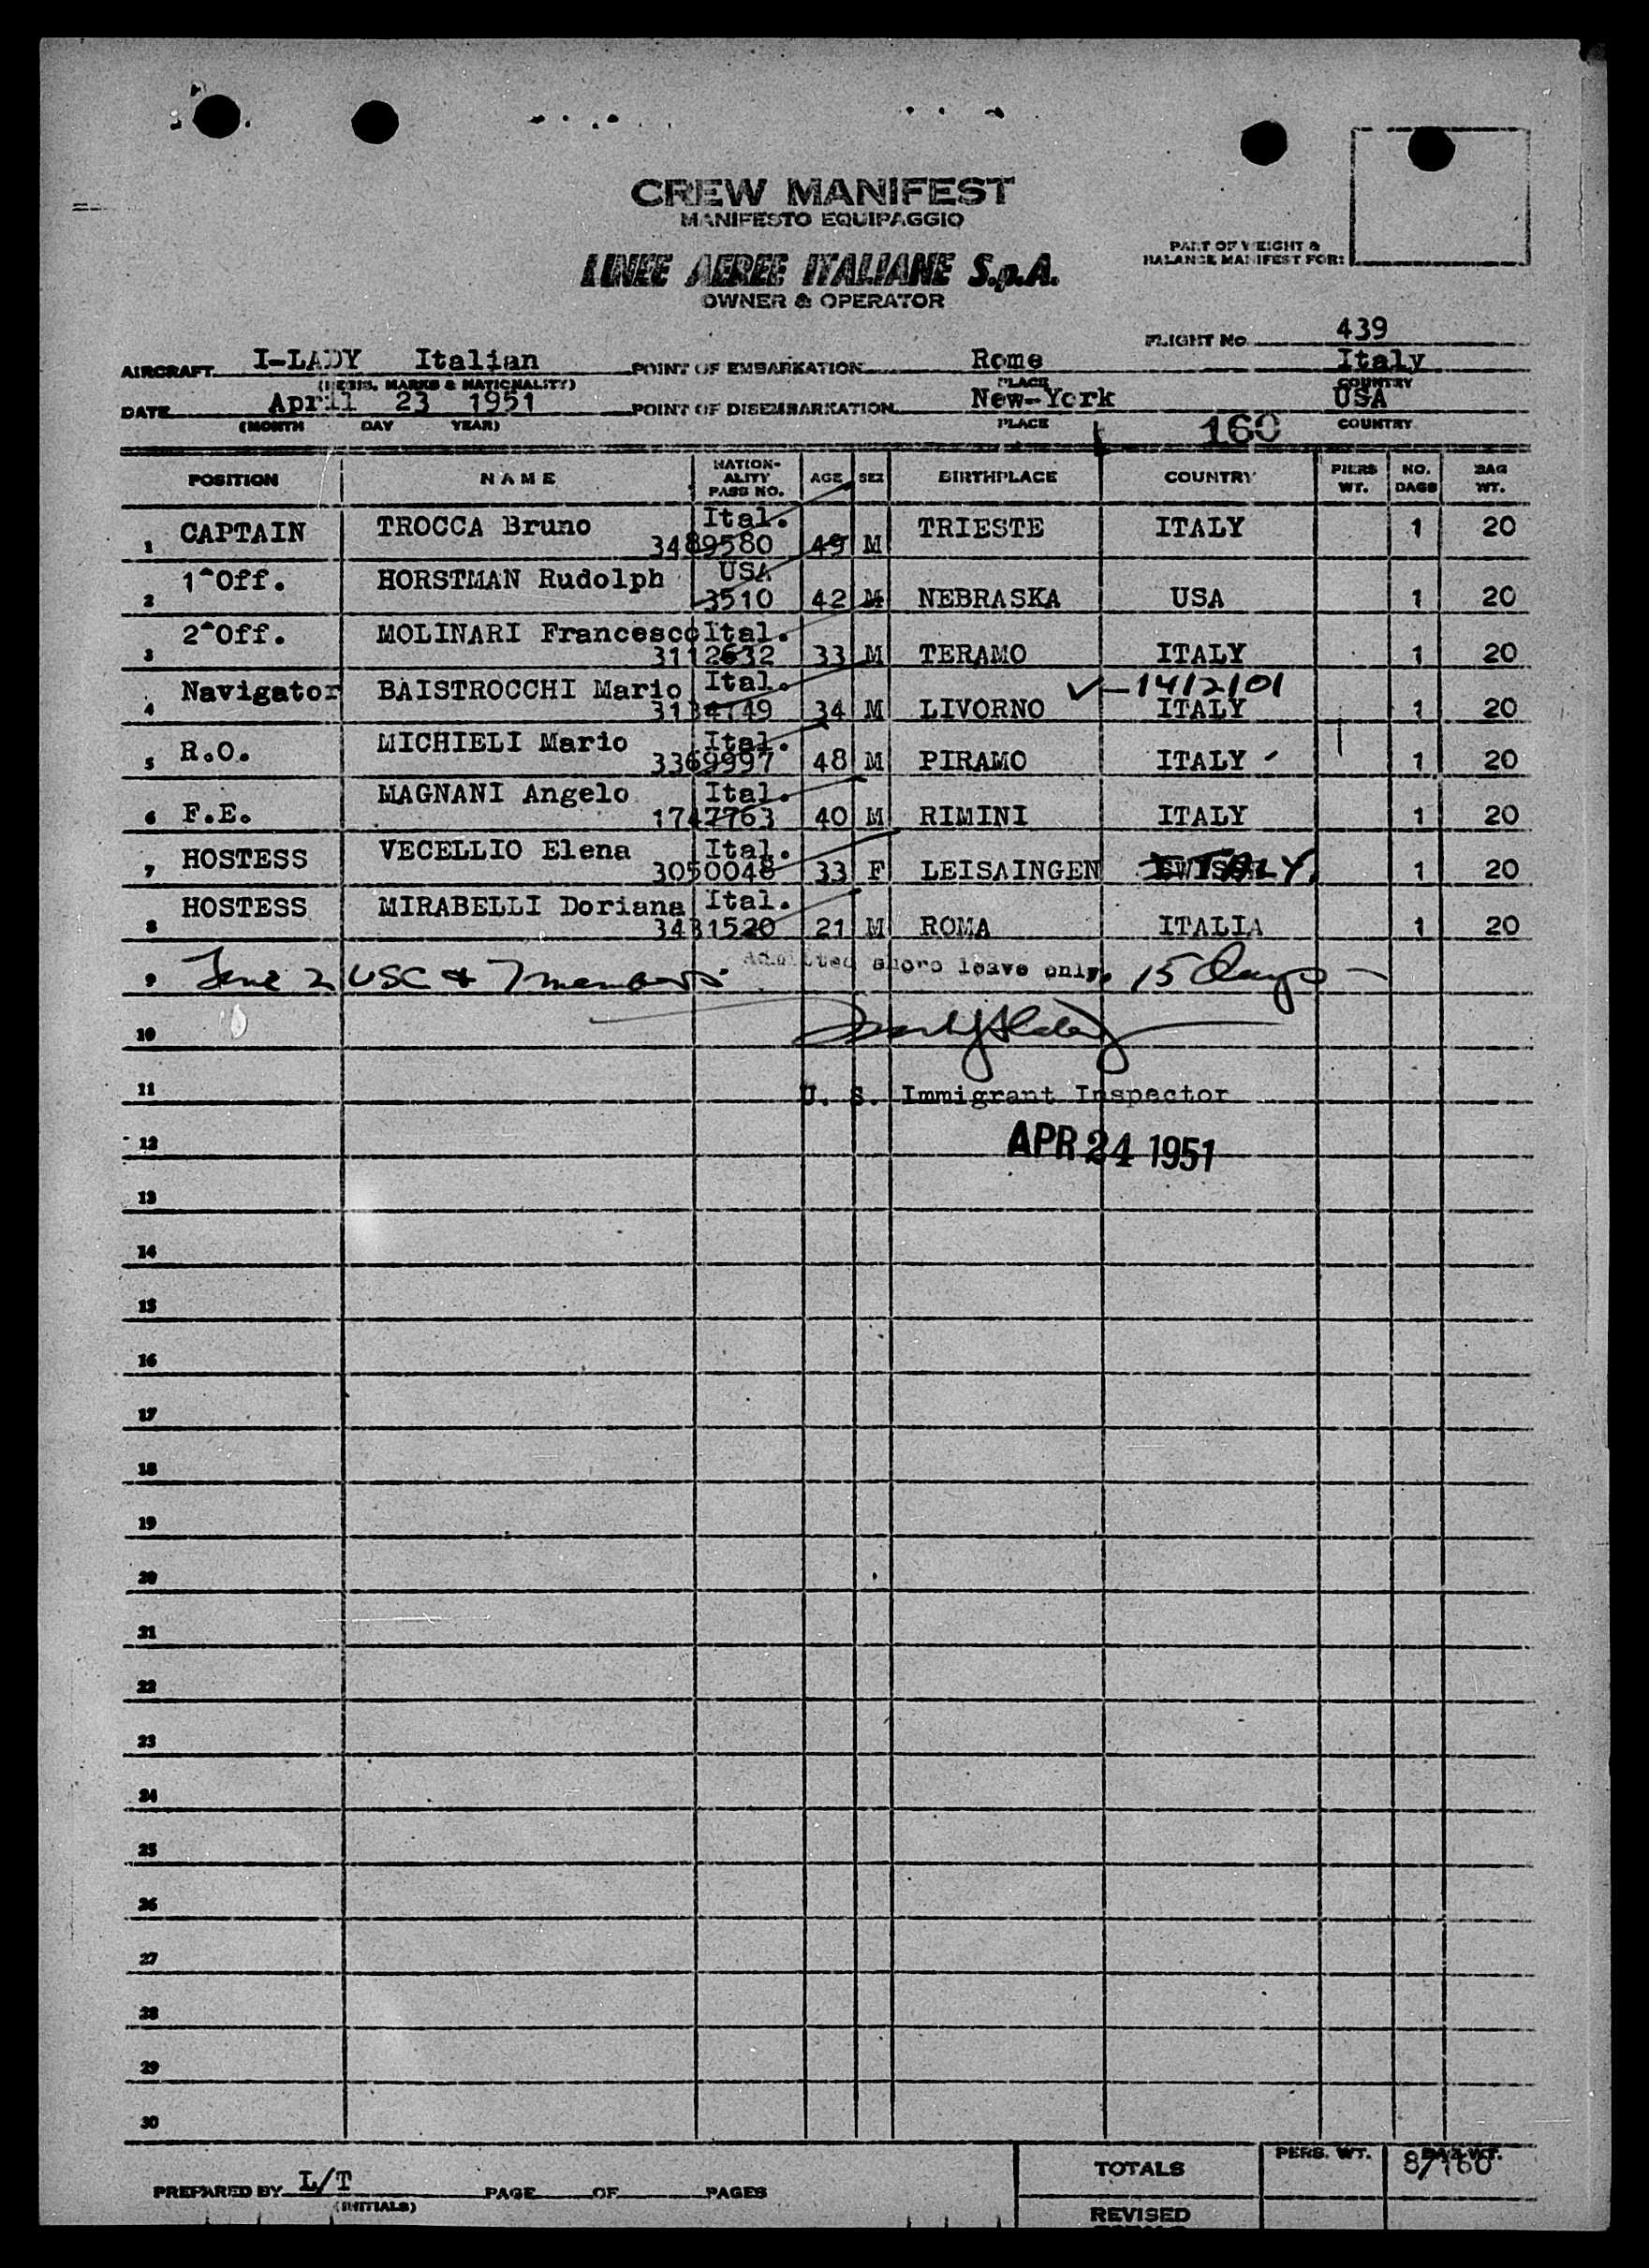 CREW MANIFEST
MANIFESTO EQUIPAGGIO
LINEE AEREE ITALIANE S.p.A.
OWNER & OPERATOR
PART OF WEIGHT &
BALANCE MANIFEST FOR:
FLIGHT No 439
AIRCRAFT I-LADY Italian POINT OF EMBARKATION Rome Italy
(REGIS. MARKS & NATIONALITY) PLACE COUNTRY
DATE April 23 1951 POINT OF DISEMBARKATION New-York USA
(MONTH DAY YEAR) PLACE 160 COUNTRY
POSITION NAME NATION-ALITY PASS NO. AGE SEX BIRTHPLACE COUNTRY PIERS WT. NO. BAGS BAG WT.
1 CAPTAIN TROCCA Bruno Ital. 3489580 49 M TRIESTE ITALY 1 20
2 1^Off. HORSTMAN Rudolph USA 3510 42 M NEBRASKA USA 1 20
3 2^Off. MOLINARI Francesco Ital. 3112632 33 M TERAMO ITALY 1 20
4 Navigator BAISTROCCHI Mario Ital. 3134749 34 M LIVORNO ITALY 1 20
✓-1412101
5 R.O. MICHIELI Mario Ital. 3369997 48 M PIRAMO ITALY 1 20
6 F.E. MAGNANI Angelo Ital. 1747763 40 M RIMINI ITALY 1 20
7 HOSTESS VECELLIO Elena Ital. 3050048 33 F LEISAINGEN ITALY 1 20
8 HOSTESS MIRABELLI Doriana Ital. 3431520 21 M ROMA ITALIA 1 20
9 Line 2 USC & 7 members Admitted shore leave only, 15 Days -
10
11 U. S. Immigrant Inspector
12 APR 24 1951
13
14
15
16
17
18
19
20
21
22
23
24
25
26
27
28
29
30
PREPARED BY L/T PAGE OF PAGES
(INITIALS)
TOTALS PERS. WT. BAG WT. 8/160
REVISED